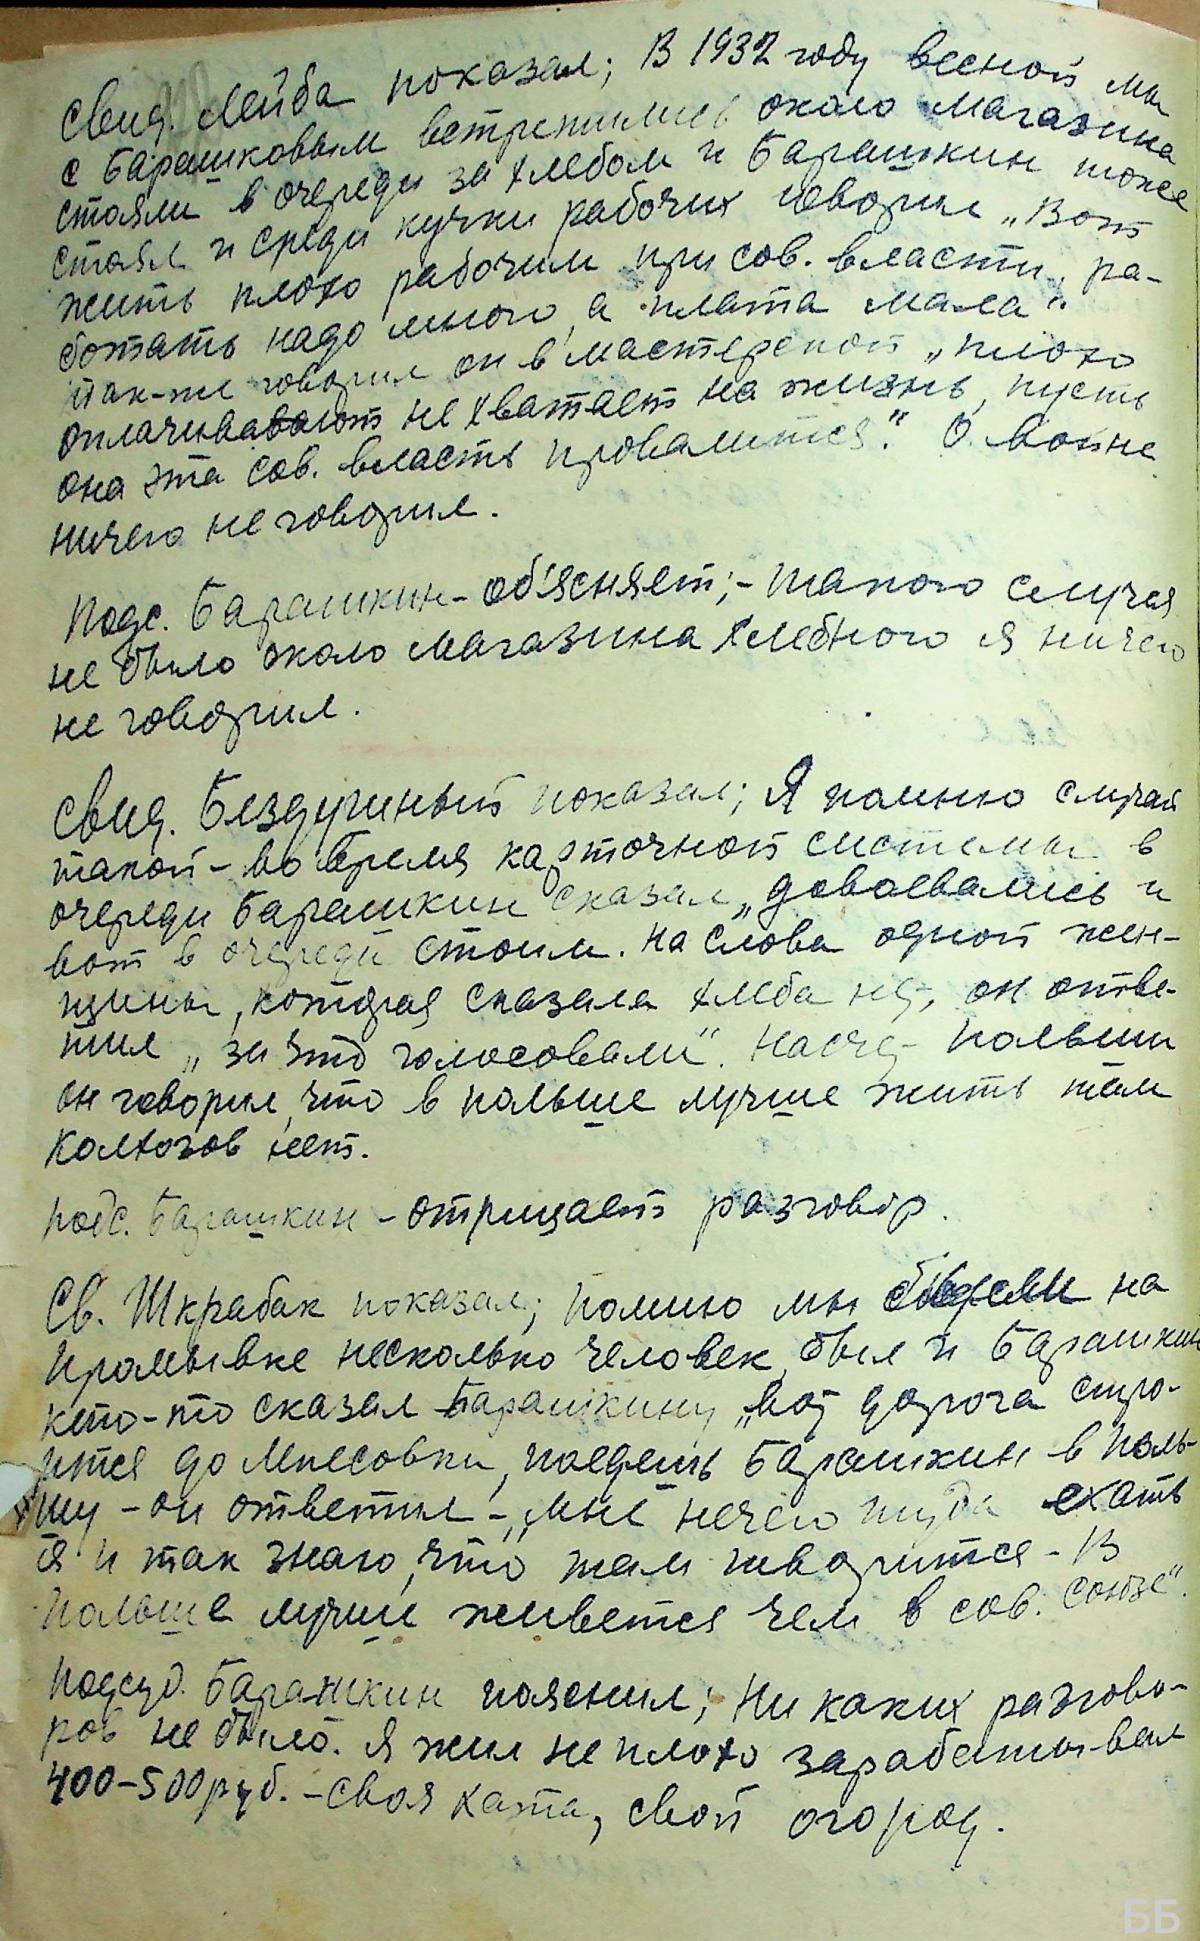 Свид. Лейба показал; В 1932 году весной мы
с Барашковым встретились около магазина
стояли в очереди за хлебом и Барашкин тоже
стоял и среди кучки рабочих говорил „Вот
жить плохо рабочим при сов. власти, ра-
ботать надо много, а плата мала"
так-же говорил он в мастерской „плохо
оплачивавают не хватает на жизнь, пусть
она эта сов. власть провалится". О войне
ничего не говорил.
Подс. Барашкин - об'ясняет; - такого случая
не было около магазина хлебного я ничего
не говорил.
Свид. Бездушный показал; Я помню случай
такой - во время карточной системы в
очереди Барашкин сказал „довоевались и
вот в очереди стоим. На слова одной жен-
щины, которая сказала хлеба нет, он отве-
тил „за что голосовали". Насчет польши
он говорил, что в польше лучше жить там
колхозов нет.
подс. Барашкин - отрицает разговор.
Св. Шкрабак показал; помню мы на
промывке несколько человек, был и Барашкин
кто-то сказал Барашкину „вот дорога стро-
ится до поедешь Барашкин в Поль-
шу - он ответил - „мне нечего туда ехать
я и так знаю, что там творится - В
польше лучше живется чем в сов. союзе".
Подсуд. Барашкин пояснил; Ни каких разгово-
ров не было. Я жил не плохо зарабатывал
400-500 руб. - своя хата, свой огород.
ББ